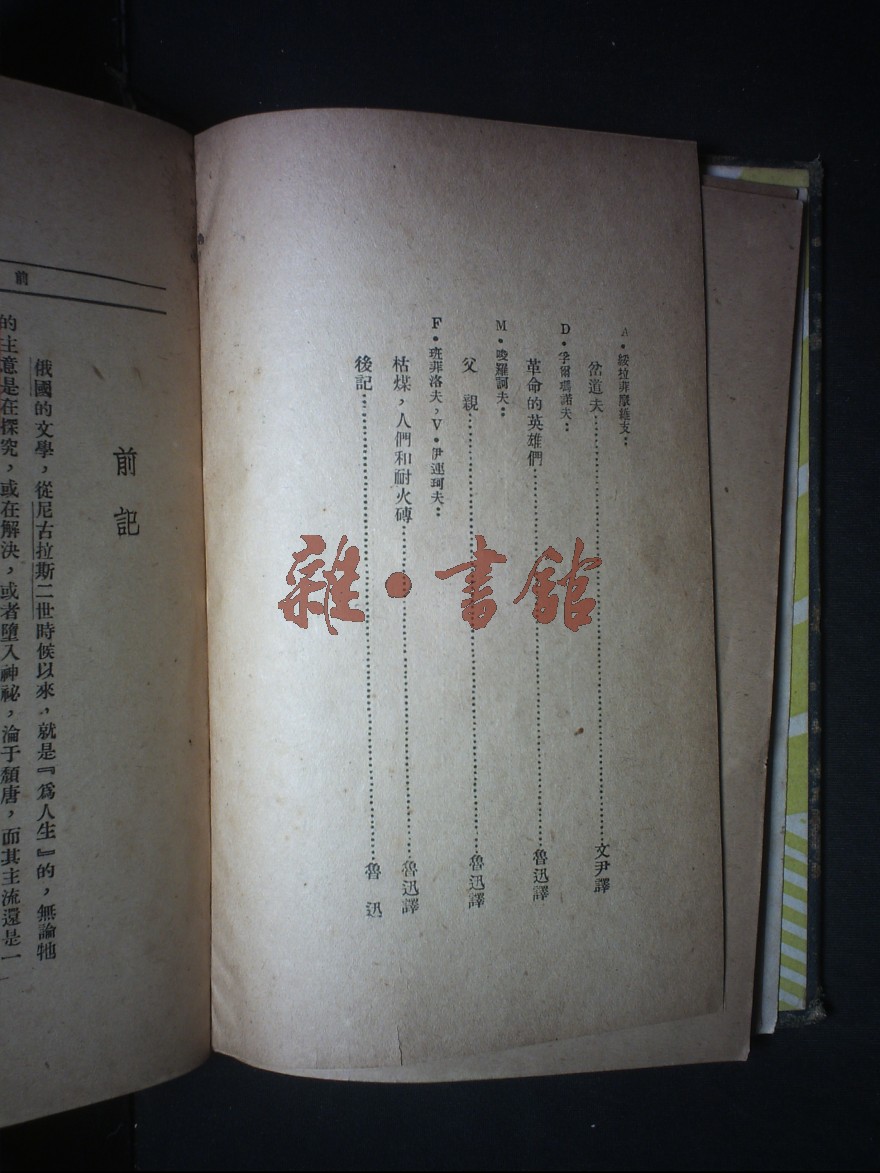 A・綏拉菲摩維支：
岔道夫……文尹譯
D・孚爾瑪諾夫：
革命的英雄們……魯迅譯
M・唆羅訶夫：
父親……魯迅譯
F・班菲洛夫，V・伊連珂夫：
枯煤，人們和耐火磚……魯迅譯
後記……魯迅
雜・書館
前
前記
俄國的文學，從尼古拉斯二世時候以來，就是『為人生』的，無論牠
的主意是在探究，或在解決，或者墮入神祕，淪于頹唐，而其主流還是一